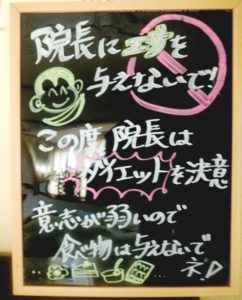 院長にエサを
与えないで!
この度、院長は
ダイエットを決意
意志が弱いので
食べ物は与えないで
ネ!